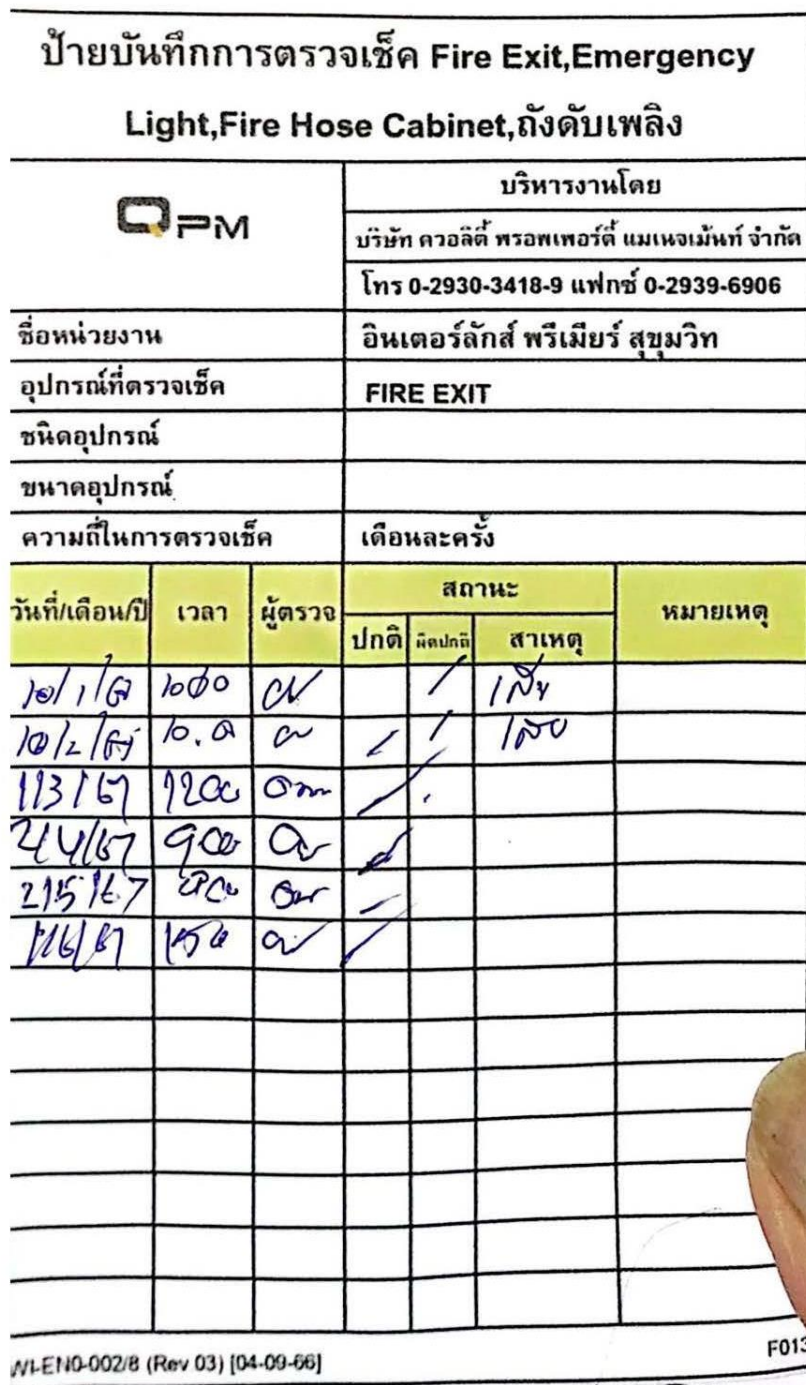 ป้ายบันทึกการตรวจเช็ค Fire Exit,Emergency
Light,Fire Hose Cabinet,ถังดับเพลิง
QPM
บริหารงานโดย
บริษัท ควอลิตี้ พรอพเพอร์ตี้ แมเนจเม้นท์ จำกัด
โทร 0-2930-3418-9 แฟกซ์ 0-2939-6906
ชื่อหน่วยงาน อินเตอร์ลักส์ พรีเมียร์ สุขุมวิท
อุปกรณ์ที่ตรวจเช็ค FIRE EXIT
ชนิดอุปกรณ์
ขนาดอุปกรณ์
ความถี่ในการตรวจเช็ค เดือนละครั้ง
วันที่/เดือน/ปี เวลา ผู้ตรวจ สถานะ หมายเหตุ
ปกติ ผิดปกติ สาเหตุ
เสีย
เสีย
1/3/67 1200
900
2/5/67
WI-EN0-002/8 (Rev 03) [04-09-66] F013